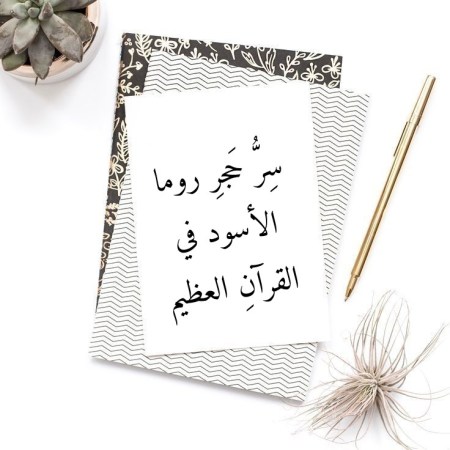 سِرُّ حَجرِ روما
الأسود في
القرآنِ العظيم